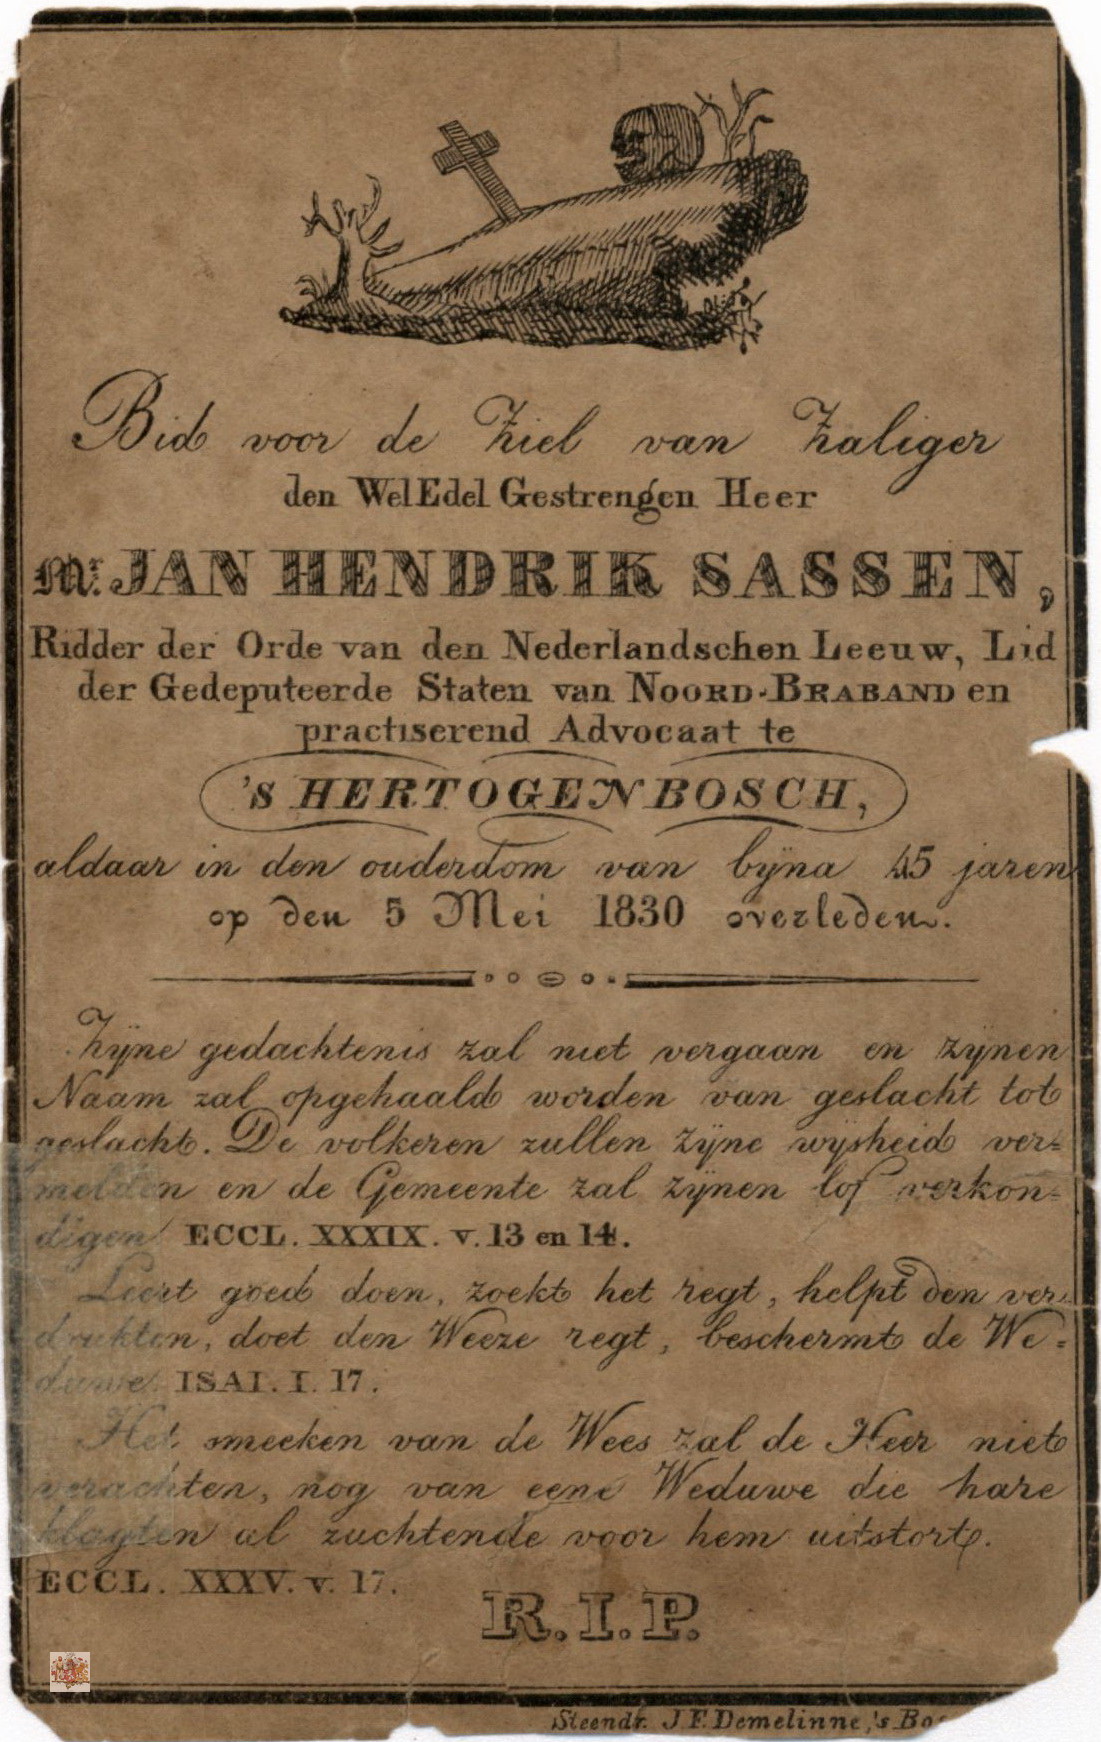 Bid voor de Ziel van Zaliger
den WelEdel Gestrengen Heer
Mr. JAN HENDRIK SASSEN,
Ridder der Orde van den Nederlandschen Leeuw, Lid
der Gedeputeerde Staten van NOORD-BRABAND en
practiserend Advocaat te
's HERTOGENBOSCH,
aldaar in den ouderdom van bÿna 45 jaren
op den 5 Mei 1830 overleden.
Zÿne gedachtenis zal niet vergaan en zÿnen
Naam zal opgehaald worden van geslacht tot
geslacht. De volkeren zullen zÿne wÿsheid ver=
melden en de Gemeente zal zÿnen lof verkon=
digen ECCL. XXXIX. v. 13 en 14.
Leert goed doen, zoekt het regt, helpt den ver=
drukten, doet den Weeze regt, beschermt de We=
duwe. ISAI. I. 17.
Het smeeken van de Wees zal de Heer niet
verachten, nog van eene Weduwe die hare
klagten al zuchtende voor hem uitstort.
ECCL. XXXV. v. 17.
R.I.P.
Steendr. J.F. Demelinne, 's Bos